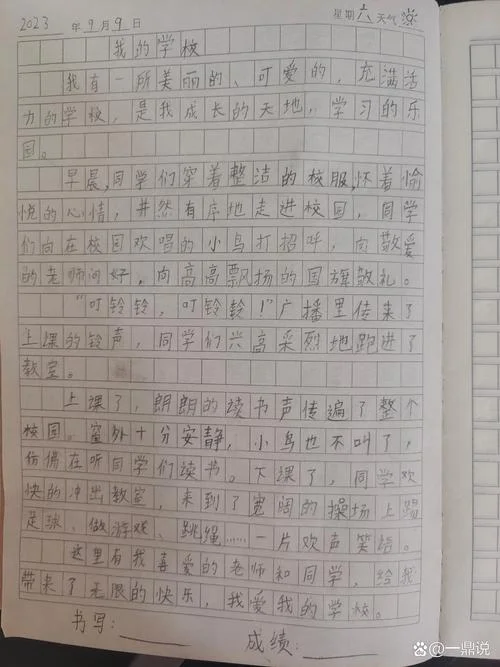 2023 年9月9日 星期六天气
我的学校
我有一所美丽的、可爱的,充满活
力的学校,是我成长的天地,学习的乐
园。
早晨,同学们穿着整洁的校服,怀着愉
悦的心情,井然有序地走进校园,同学
们向在校园欢唱的小鸟打招呼,向敬爱
的老师问好,向高高飘扬的国旗敬礼。
“叮铃铃,叮铃铃!”广播里传来了
上课的铃声,同学们兴高采烈地跑进了
教室。
上课了,朗朗的读书声传遍了整个
校园。窗外十分安静,小鸟也不叫了,
仿佛在听同学们读书。下课了,同学欢
快的冲出教室,来到了宽阔的操场上踢
足球、做游戏、跳绳……一片欢声笑语。
这里有我喜爱的老师和同学,给我
带来了无限的快乐,我爱我的学校。
书写: 成绩:
Bai百科@一鼎说